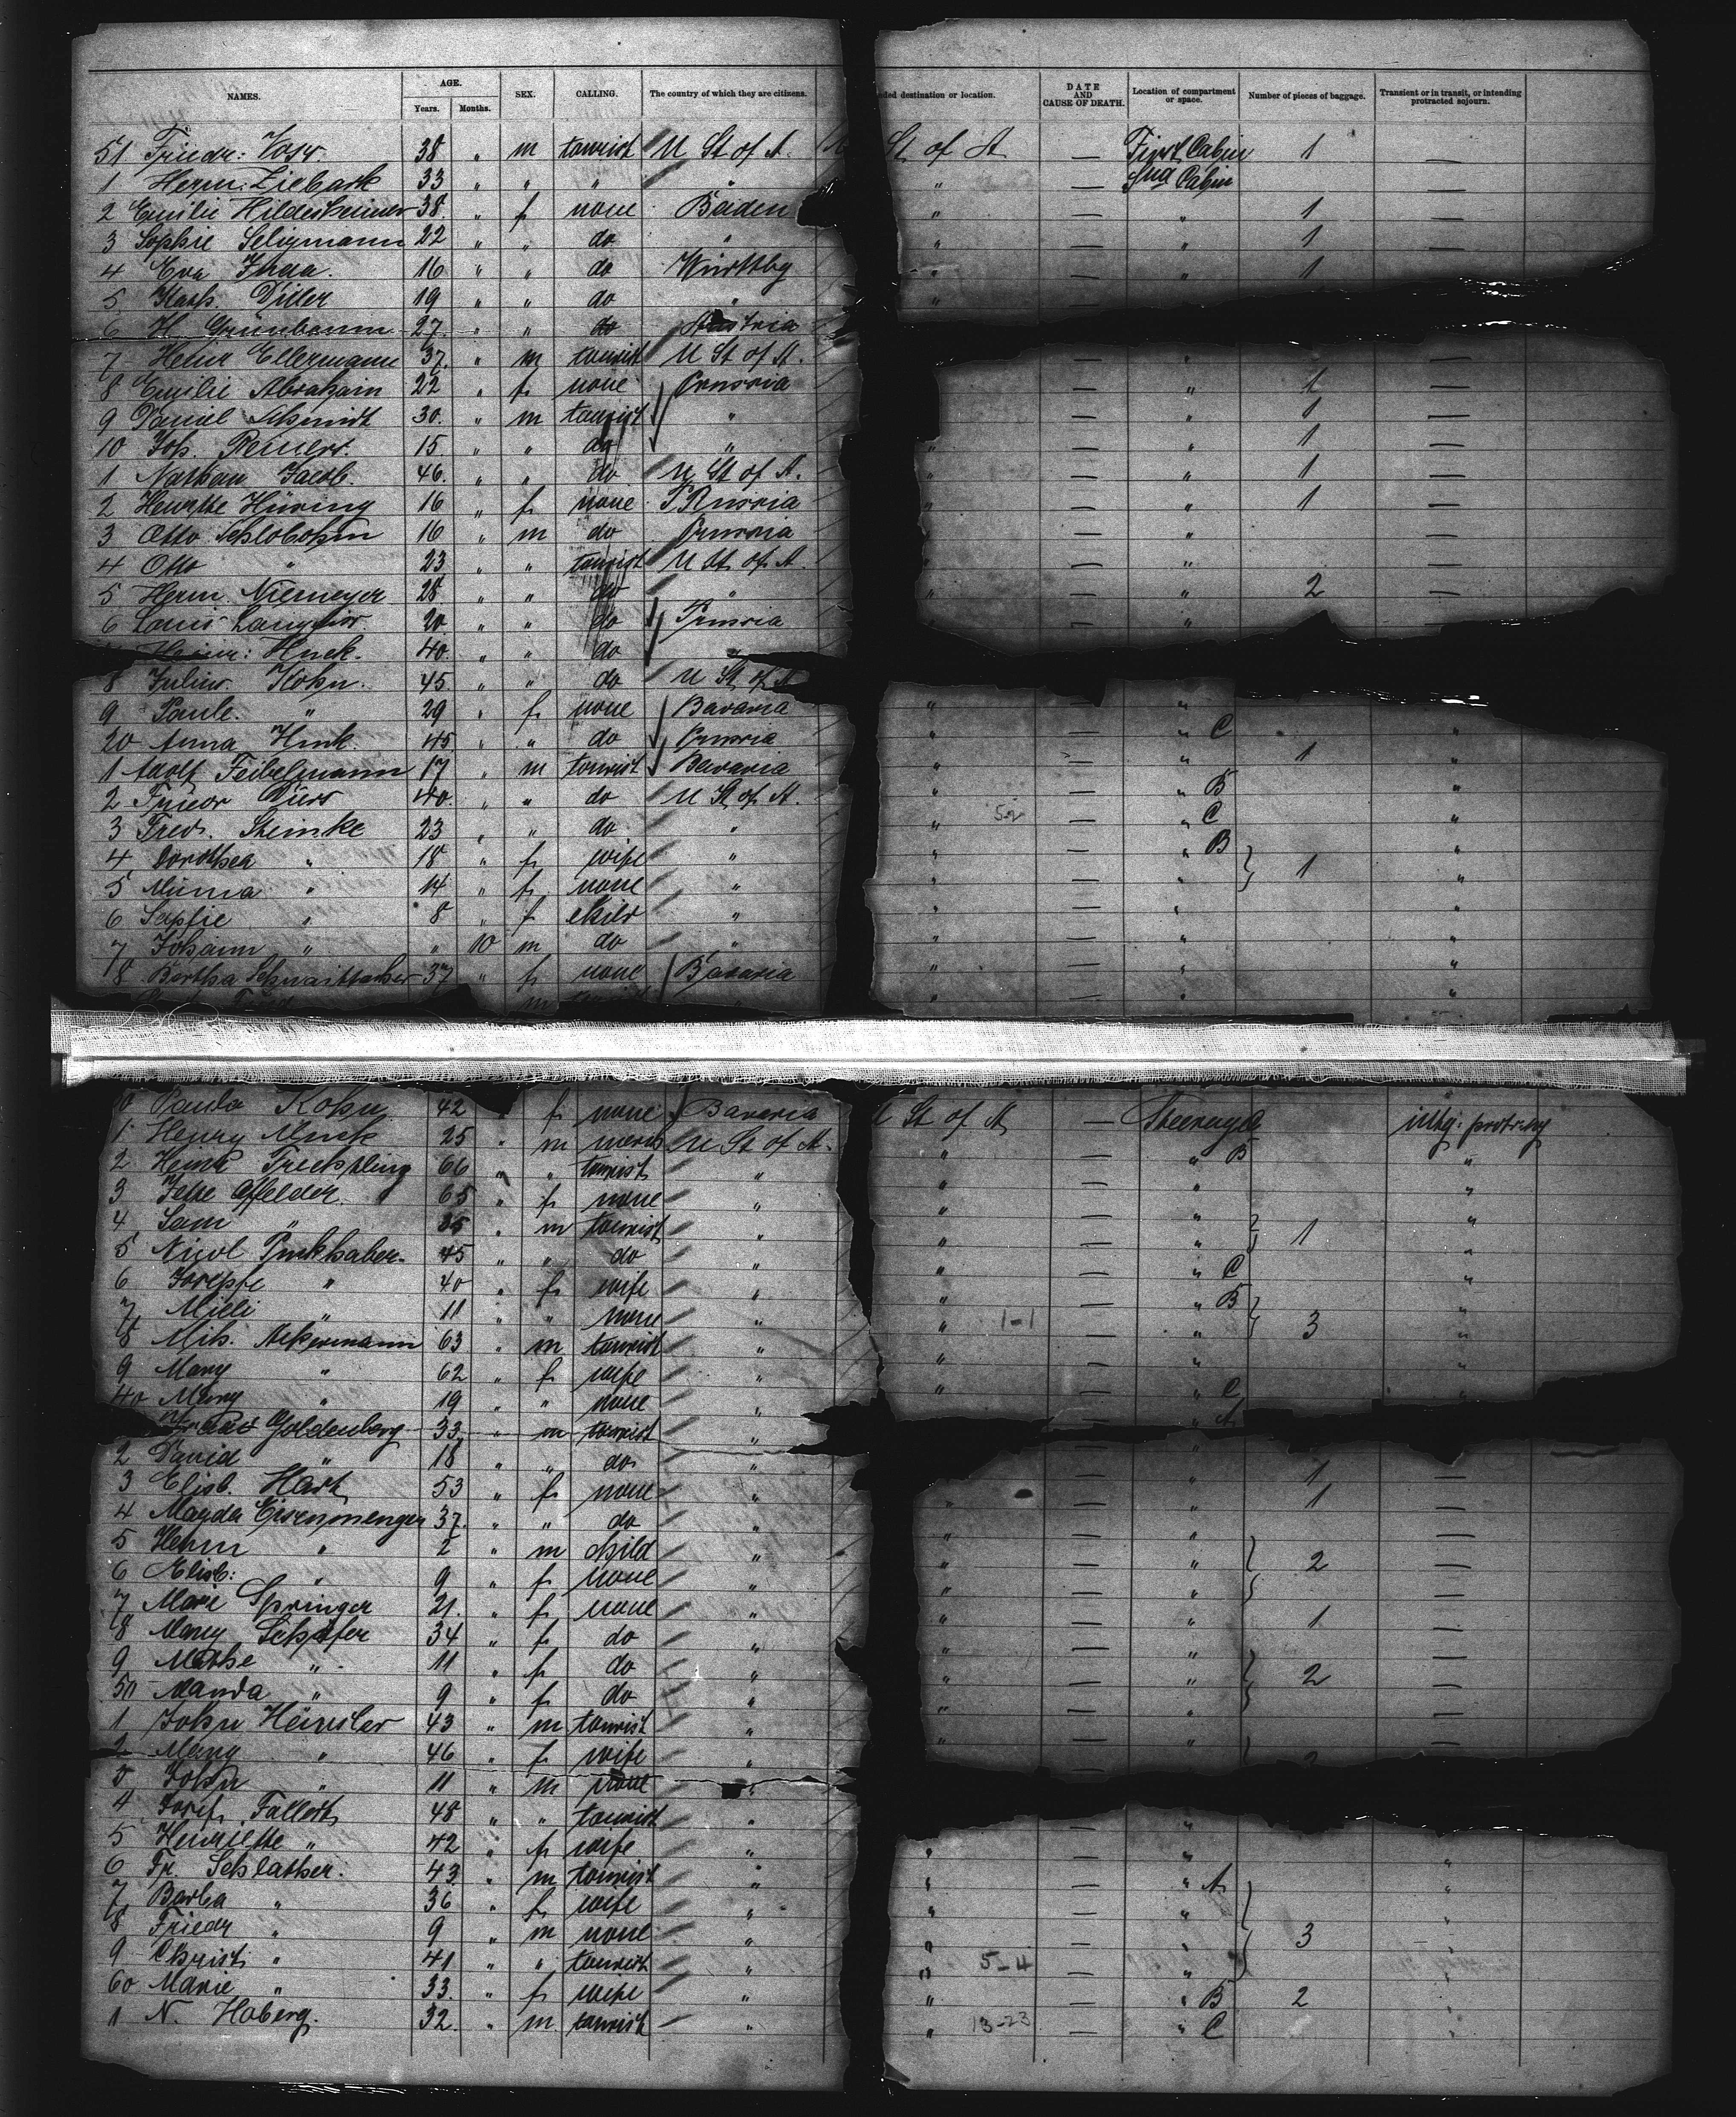 NAMES. AGE. Years. Months. SEX. CALLING. The country of which they are citizens. ded destination or location. DATE AND CAUSE OF DEATH. Location of compartment or space. Number of pieces of baggage. Transient or in transit, or intending protracted sojourn.
51 Friedr: Voss 38 " m tourist U St of A. St of A — First Cabin 1 —
1 Herm: Ziebark 33 " " " " " — 2nd Cabin —
2 Emilie Hildesheimer 38 " f none Baden " — " 1 —
3 Sophie Seligmann 22 " " do " " — " 1 —
4 Eva 16 " " do Württbg " — " 1 —
5 Kath. 19 " " do " "
6 H. Grünbaum 27 " " do Austria
7 Heinr Ellermann 37 " m tourist U St of A. — " —
8 Emilie Abraham 22 " f none Prussia — " 1 —
9 Daniel Schmidt 30 " m tourist " — " 1 —
10 Joh. Reiners 15 " " do " " — " 1 —
1 Nathan Jacob. 46 " " do U St of A. " — " 1 —
2 Henrette Hüsing 16 " f none Prussia " — " 1 —
3 Otto Schlobohm 16 " m do Prussia " — " —
4 Otto " 23 " " tourist U St of A. " — " —
5 Herm. Niemeyer 28 " " do " " — " 2 —
6 Louis 20 " " do Prussia " — "
Heinr: Huck. 40 " " do "
8 Julius Kohn. 45 " " do U St of A
9 Paule. " 29 " f none Bavaria " — "
20 Anna Huck 45 " " do Prussia " — " C "
1 Adolf Feibelmann 17 " m tourist Bavaria " — " 1 "
2 Friedr 40 " " do U St of A. " — " B "
3 Fred. Steinke 23 " " do " " 52 — " C "
4 Dorothea " 18 " f wife " " — " B "
5 Minna " 14 " f none " " — " 1 "
6 Sophie " 8 " f child " " — " "
7 Johann " " 10 m do " " — " "
8 Bertha Schnaittacher 37 " f none Bavaria " — " "
m tourist " " — " "
0 Paula Kohn 42 " f none Bavaria St of A — Steerage C
1 Henry Munk 25 " m merch U St of A. " — " B "
2 Heinr 66 " " tourist " " — " "
3 Jette Affelder 65 " f none " " — " "
4 Sam " 35 " m tourist " " — " 1 "
5 Nicol Purkhaber 45 " " do " " — " C "
6 " 40 " f wife " " — " B "
7 Milli " 11 " " none " " 1-1 — " 3 "
8 Mih. Ackermann 63 " m tourist " " — " "
9 Mary " 62 " f wife " " — " C "
40 Mary " 19 " " none " — " A
Goldenberg 33 " m tourist "
2 David " 18 " " do " — " 1 —
3 Elisb. Hart 53 " f none " " — " 1 —
4 Magda Eisenmenger 37 " " do " " — " —
5 Herm " 2 " m child " " — " 2 —
6 Elisb: " 9 " f none " " — " —
7 Marie Springer 21. " f none " " — " 1 —
8 Mary Schäfer 34 " f do " " — " —
9 Mathe " 11 " f do " " — " 2 —
50 Manda " 9 " f do " " — " —
1 John Heinsler 43 " m tourist " " — " —
2 Mary " 46 " f wife "
3 John " 11 " m none "
4 Josef Fallert 48 " " tourist " "
5 Henriette " 42 " f wife " " — " "
6 Fr Schlather. 43 " m tourist " " — " A "
7 Barba " 36 " f wife " " — " "
8 Friedr " 9 " m none " " — " 3 "
9 Christ " 41 " " tourist " " 5-4 — " "
60 Marie " 33 " f wife " " — " B 2 "
1 N. Hoberg. 32 " m tourist " " 13-23 — " C "